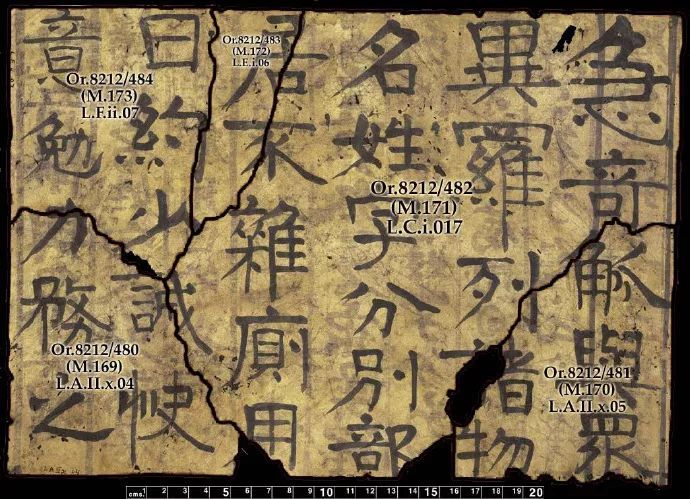 急奇觚與眾
異羅列諸物
名姓字分別部
居不雜廁用
日約少誠快
意勉力務之
Or.8212/484
(M.173)
L.F.ii.07
Or.8212/483
(M.172)
L.E.i.06
Or.8212/482
(M.171)
L.C.i.017
Or.8212/480
(M.169)
L.A.II.x.04
Or.8212/481
(M.170)
L.A.II.x.05
cms. 1 2 3 4 5 6 7 8 9 10 11 12 13 14 15 16 17 18 19 20